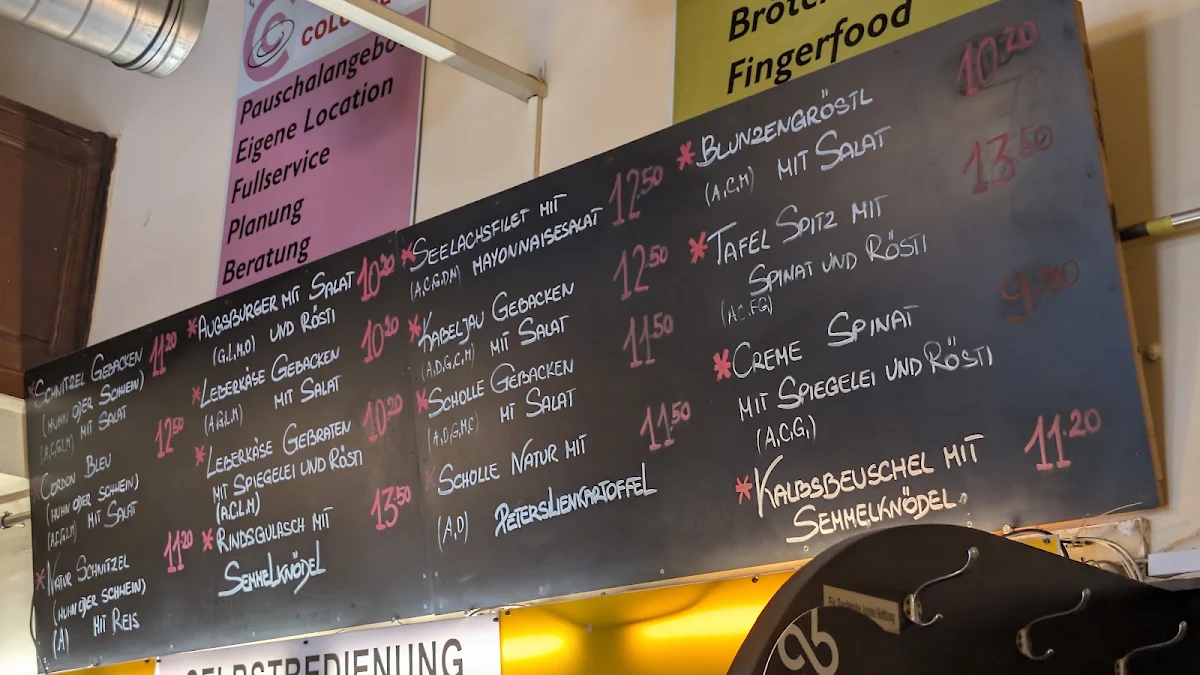 Pauschalangebo
Eigene Location
Fullservice
Planung
Beratung
Fingerfood
SCHNITZEL GEBACKEN 11.20
(HUHN ODER SCHWEIN)
(A,C,G,L,M) MIT SALAT
CORDON BLEU 12.50
(HUHN ODER SCHWEIN)
(A,C,G,L) MIT SALAT
* NATUR SCHNITZEL 11.20
(HUHN ODER SCHWEIN)
(A) MIT REIS
* AUGSBURGER MIT SALAT 10.20
(G,L,M,O) UND RÖSTI
* LEBERKÄSE GEBACKEN 10.20
(A,G,L,M) MIT SALAT
* LEBERKÄSE GEBRATEN 10.20
MIT SPIEGELEI UND RÖSTI
(A,C,L,M)
* RINDSGULASCH MIT 13.50
SEMMELKNÖDEL
* SEELACHSFILET MIT 12.50
(A,C,G,D,M) MAYONNAISESALAT
* KABELJAU GEBACKEN 12.50
(A,D,G,C,M) MIT SALAT
* SCHOLLE GEBACKEN 11.50
(A,D,G,M,C) MIT SALAT
* SCHOLLE NATUR MIT 11.50
(A,D) PETERSILIENKARTOFFEL
* BLUNZENGRÖSTL 10.20
(A,C,M) MIT SALAT
* TAFEL SPITZ MIT 13.50
SPINAT UND RÖSTI
(A,C,F,G)
* CREME SPINAT 9.20
MIT SPIEGELEI UND RÖSTI
(A,C,G,)
* KALBSBEUSCHEL MIT 11.20
SEMMELKNÖDEL.
SELBSTBEDIENUNG